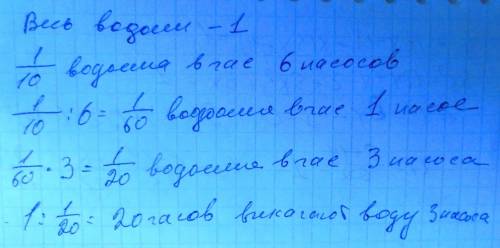 Весь водоем - 1
1/10 водоема в час 6 насосов
1/10 : 6 = 1/60 водоема в час 1 насос
1/60 · 3 = 1/20 водоема в час 3 насоса
1 : 1/20 = 20 часов выкачают воду 3 насоса